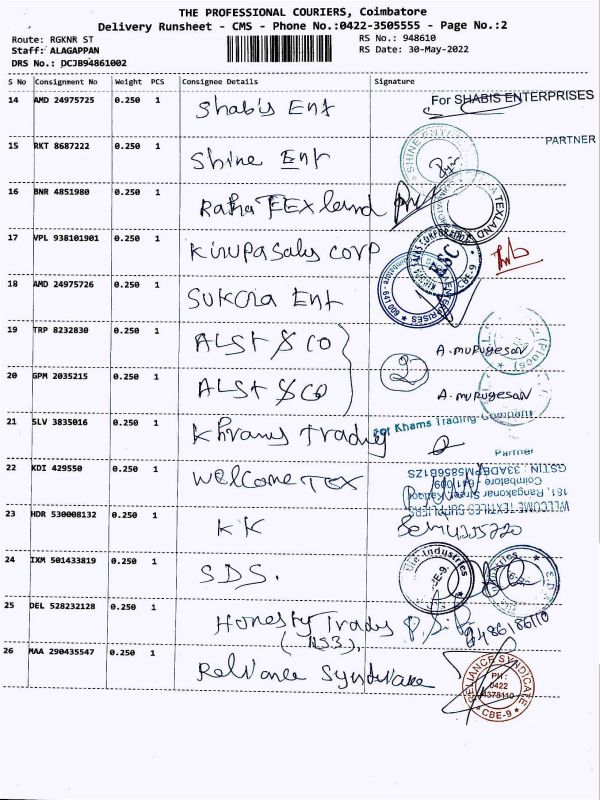 THE PROFESSIONAL COURIERS, Coimbatore
Delivery Runsheet - CMS - Phone No.:0422-3505555 - Page No.:2
Route: RGKNR ST RS No.: 948610
Staff: ALAGAPPAN RS Date: 30-May-2022
DRS No.: DCJB94861002
S No Consignment No Weight PCS Consignee Details Signature
14 AMD 24975725 0.250 1 Shabis Ent For SHABIS ENTERPRISES
PARTNER
15 RKT 8687222 0.250 1 Shine Ent SHINE ENT
16 BNR 4851980 0.250 1 Raha TEXland TEXLAND
17 VPL 938101901 0.250 1 Kirupasales corp
18 AMD 24975726 0.250 1 Sukria Ent
19 TRP 8232830 0.250 1 ALSt & CO A. murugesan
2
20 GPM 2035215 0.250 1 ALSt & CO A. murugesan
21 SLV 3835016 0.250 1 Khrams Trading For Khams Trading Company
Partner
22 KDI 429550 0.250 1 Welcome TEX
WELCOME TEXTILES SUPPLIERS
181, Rangakonar Street, Kattoor
Coimbatore - 641009
23 HDR 530008132 0.250 1 KK
24 IXM 501433819 0.250 1 SDS. Industries
25 DEL 528232128 0.250 1 Honesty Trades 9486186110
26 MAA 290435547 0.250 1 Reliance Syndicate RELIANCE SYNDICATE
PH :
0422
CBE-9